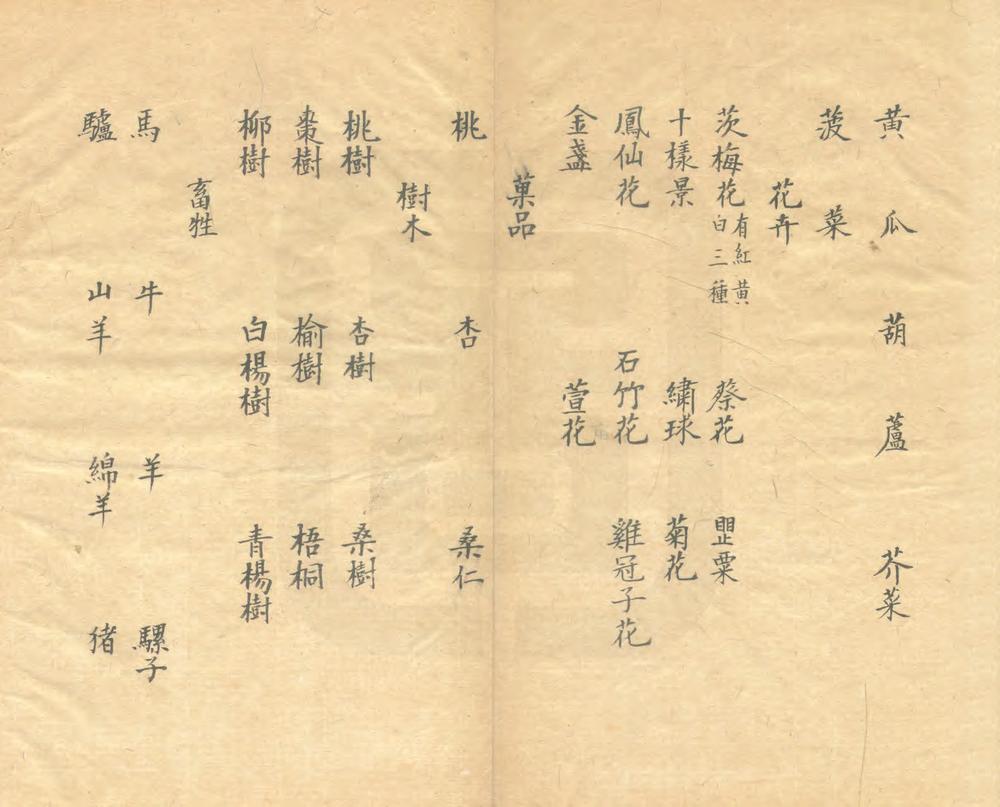 黄瓜 葫蘆 芥菜
菠菜
花卉
茨梅花 有紅黄白三種 葵花 罌粟
十樣景 繡球 菊花
鳳仙花 石竹花 雞冠子花
金盞 萱花
菓品
桃 杏 桑仁
樹木
桃樹 杏樹 桑樹
棗樹 榆樹 梧桐
柳樹 白楊樹 青楊樹
畜牲
馬 牛 羊 騾子
驢 山羊 綿羊 猪